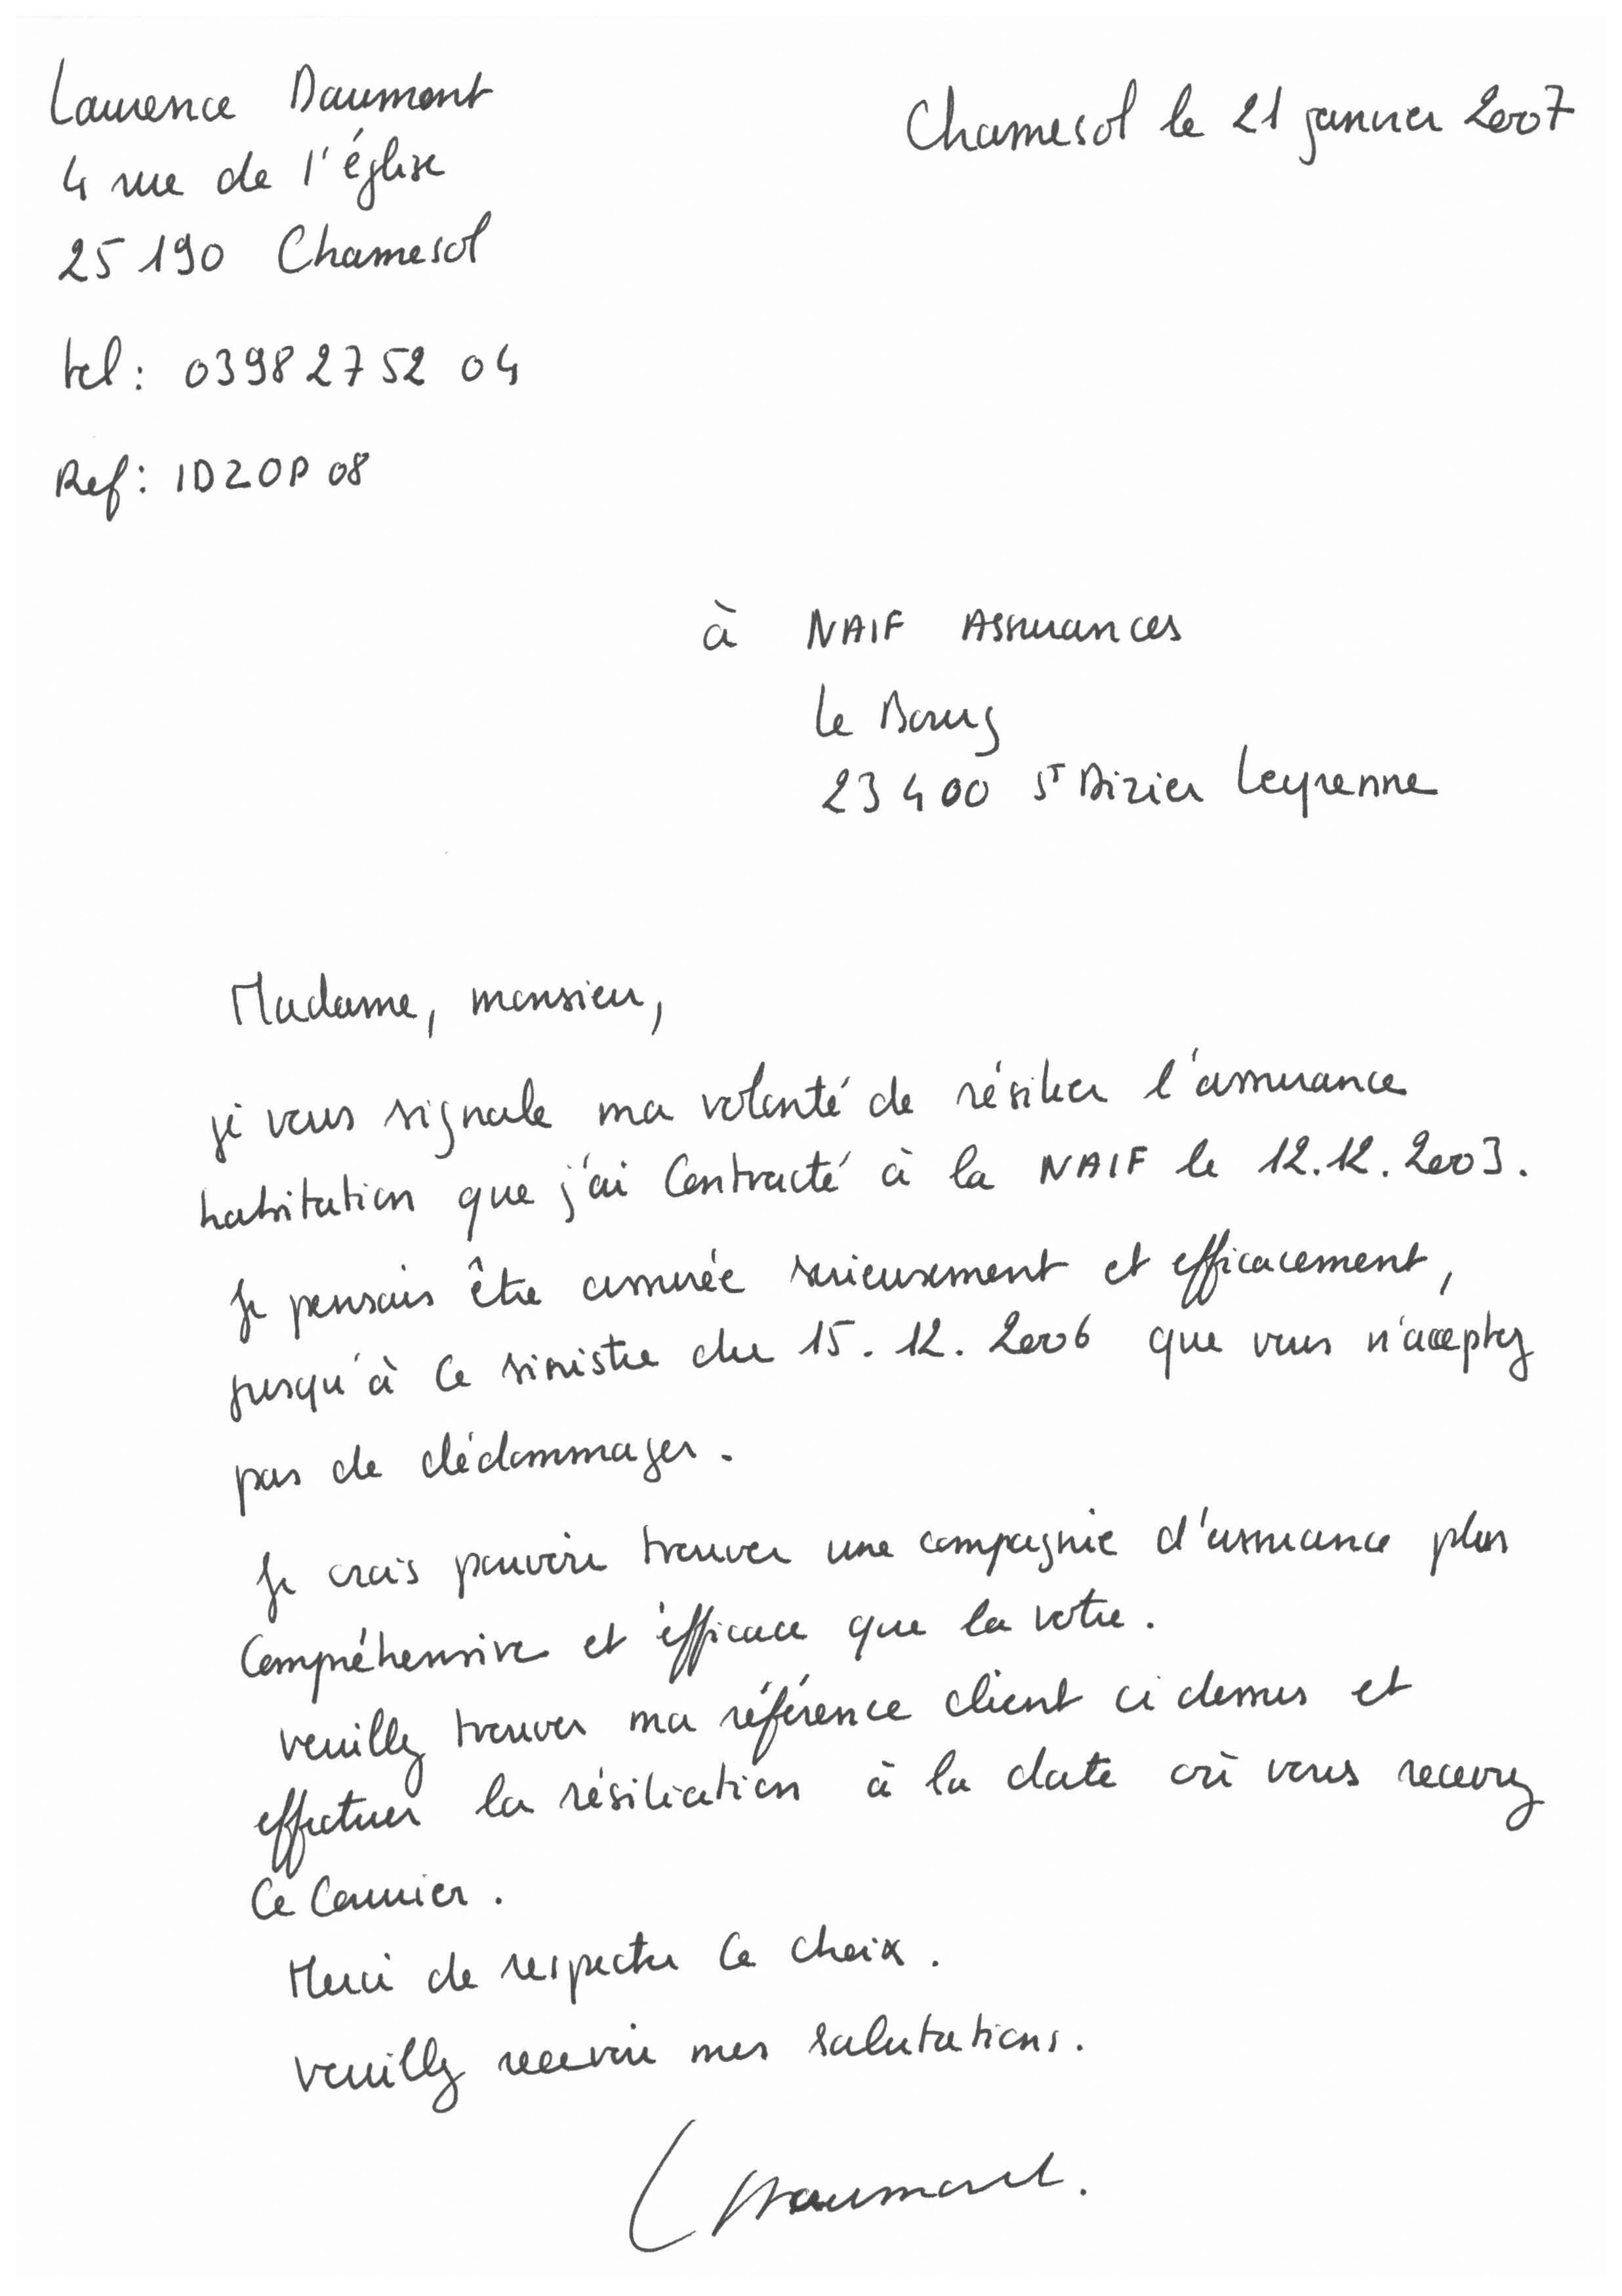 Laurence Daumont
Chamesol le 21 janvier 2007
4 rue de l'église
25 190 Chamesol
tel : 0398 27 52 04
Ref : 1D20P 08
à NAIF Assurances
le Bourg
23 400 St Dizier Leyrenne
Madame, monsieur,
je vous signale ma volonté de résilier l'assurance
habitation que j'ai contracté à la NAIF le 12.12.2003.
Je pensais être assurée serieusement et efficacement,
jusqu'à ce sinistre du 15.12.2006 que vous n'acceptez
pas de dédommager.
Je crois pouvoir trouver une compagnie d'assurance plus
compréhensive et éfficace que la votre.
veuillez trouver ma référence client ci dessus et
effectuer la résiliation à la date où vous recevez
ce courrier.
Merci de respecter ce choix.
veuillez recevoir mes salutations.
L Daumont.